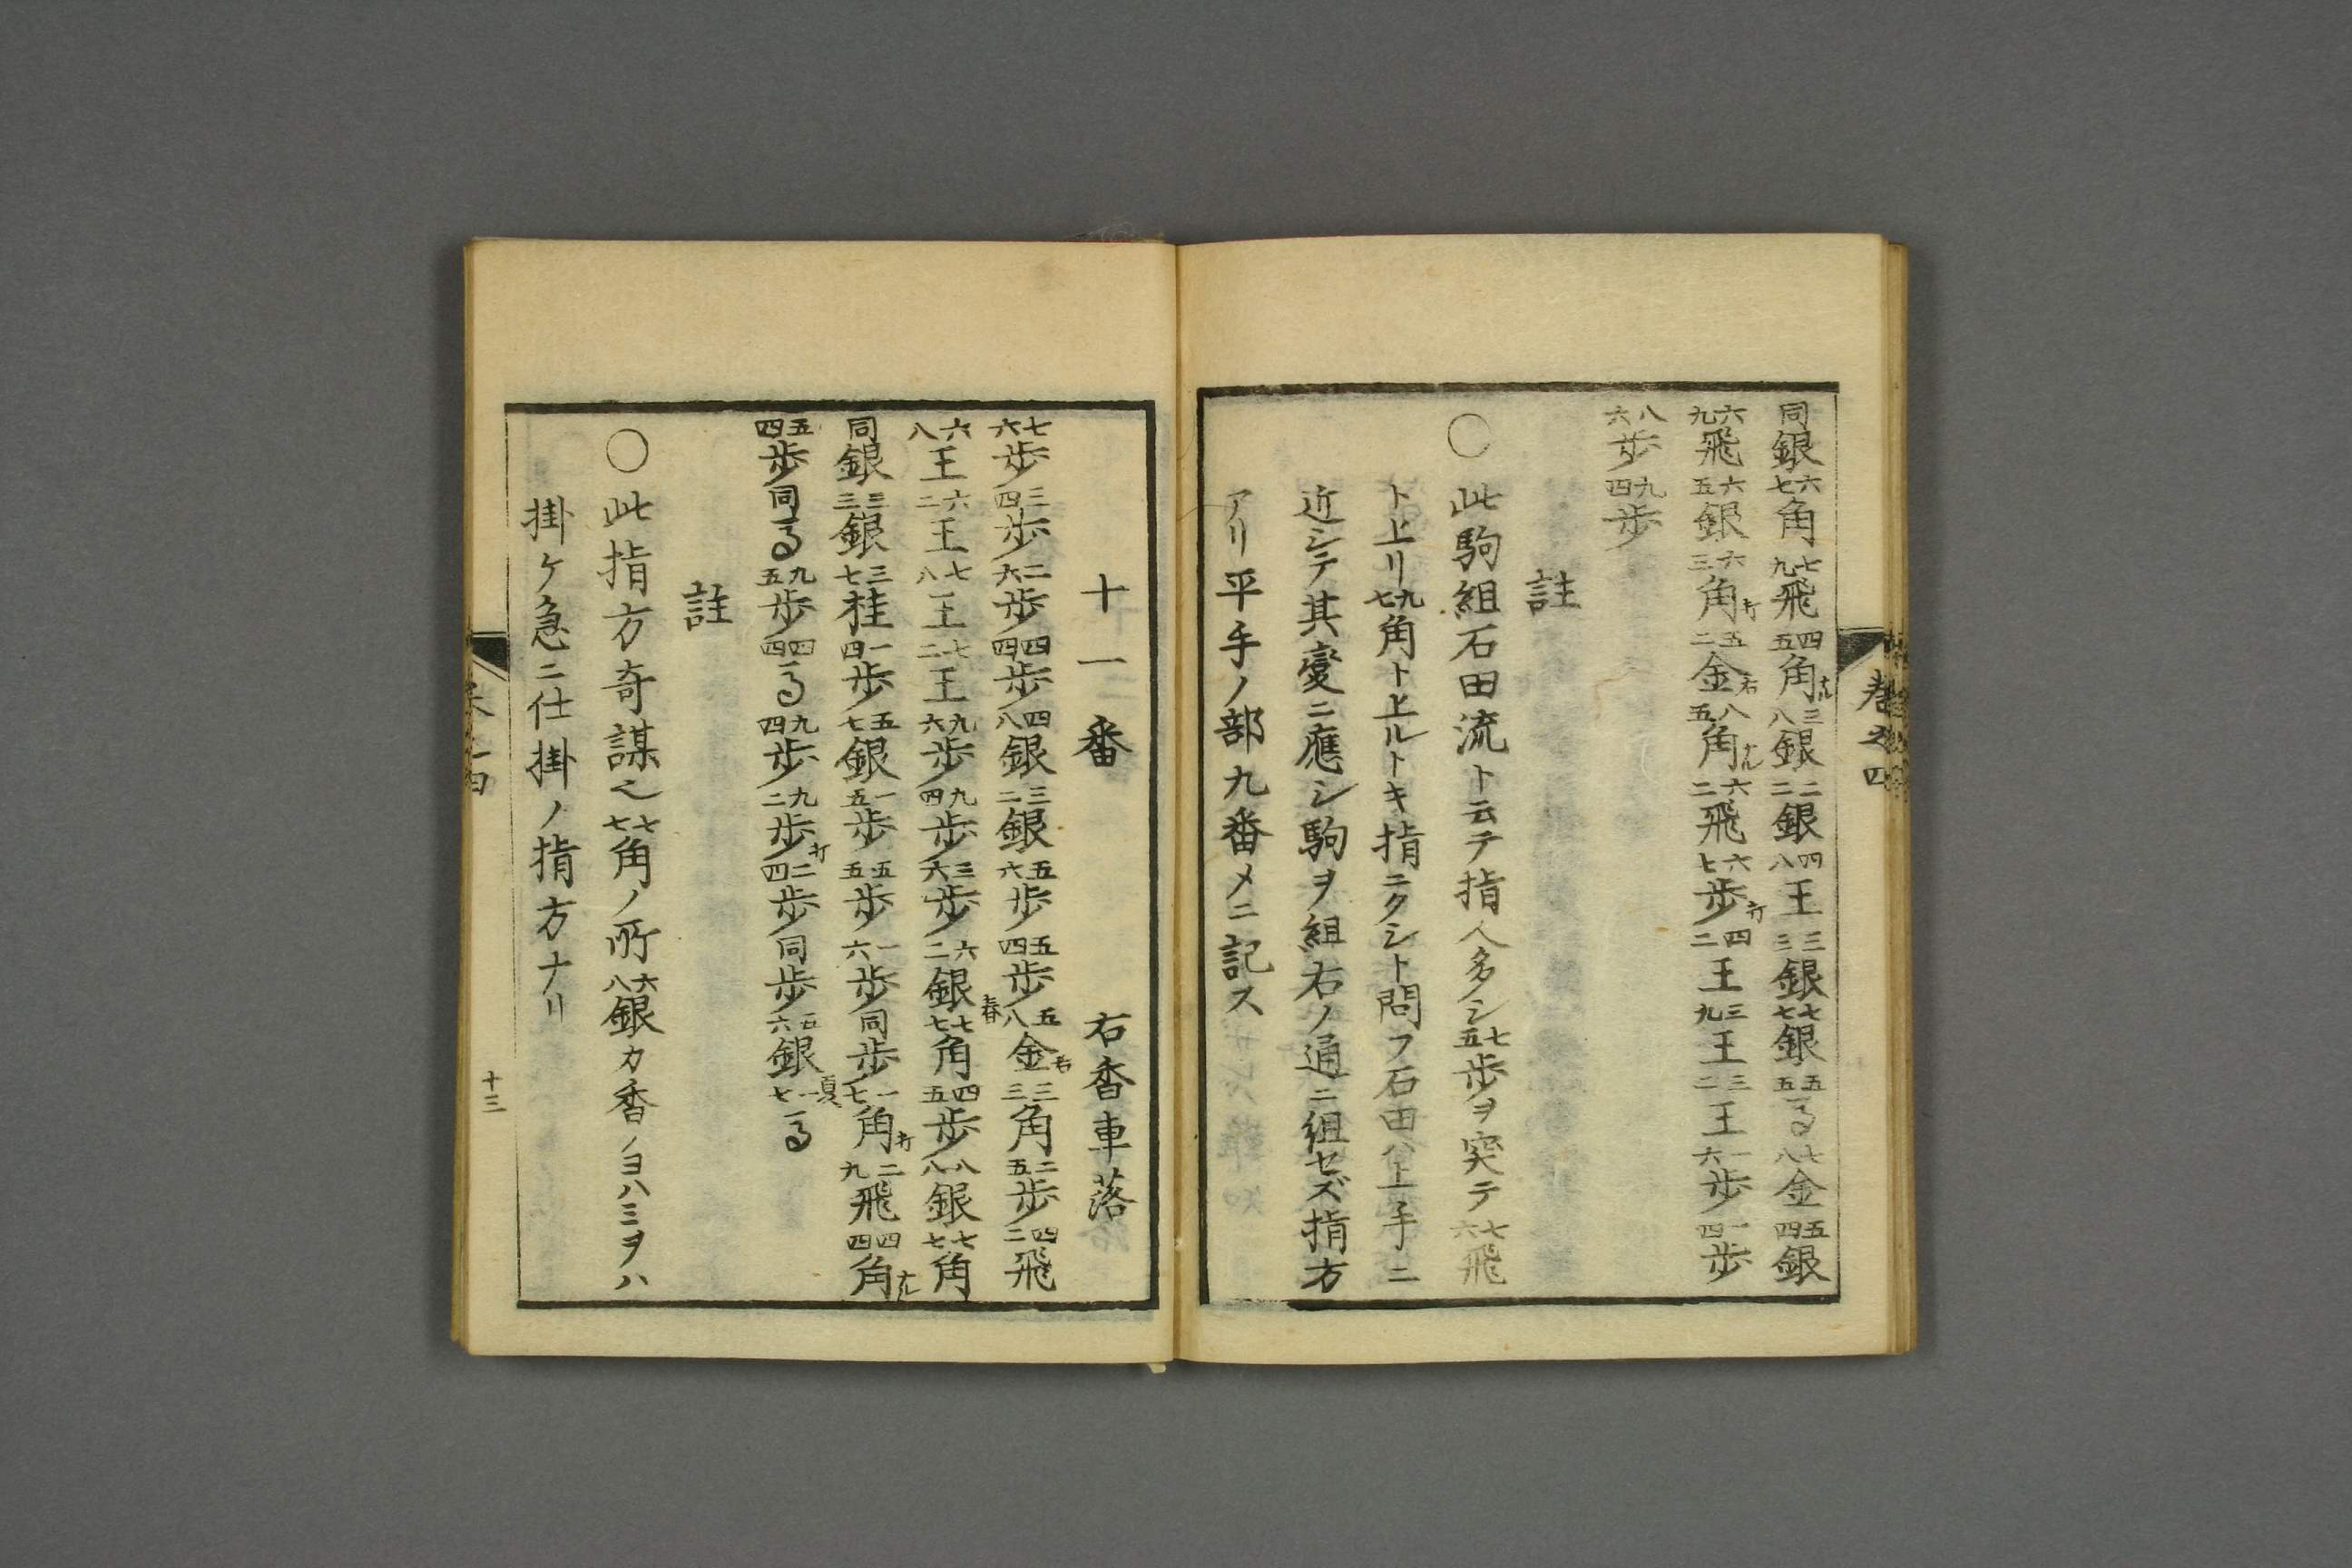 巻之四
同銀六七角七九飛四五角ナル三八銀二二銀四八王三三銀七七銀五五馬七八金五四銀
六九飛六五銀六三角打五二金右八五角ナル六二飛六七歩打四二王三九王三二王一六歩一四歩
八六歩九四歩
註
○此駒組石田流ト云テ指人多シ七五歩ヲ突テ七六飛
ト上リ九七角ト上ルトキ指ニクシト問フ石田ハ上手ニ
近シテ其變ニ應シ駒ヲ組右ノ通ニ組セズ指方
アリ平手ノ部九番メニ記ス
十一番 右香車落
七六歩三四歩二六歩四四歩四八銀三二銀五六歩五四歩五八金右三三角二五歩四二飛
六八王六二王七八王七二王九六歩九四歩三六歩六二銀春七七角四五歩八八銀七七角
同銀三三銀三七桂一四歩五七銀一五歩五五歩一六歩同歩一七角打二九飛四四角ナル
五四歩同馬九五歩四四馬九四歩九二歩打二四歩同歩五六銀夏一七馬
註
○此指方奇謀也七七角ノ所六八銀カ香ノヨハミヲハ
掛ケ急ニ仕掛ノ指方ナリ
十三